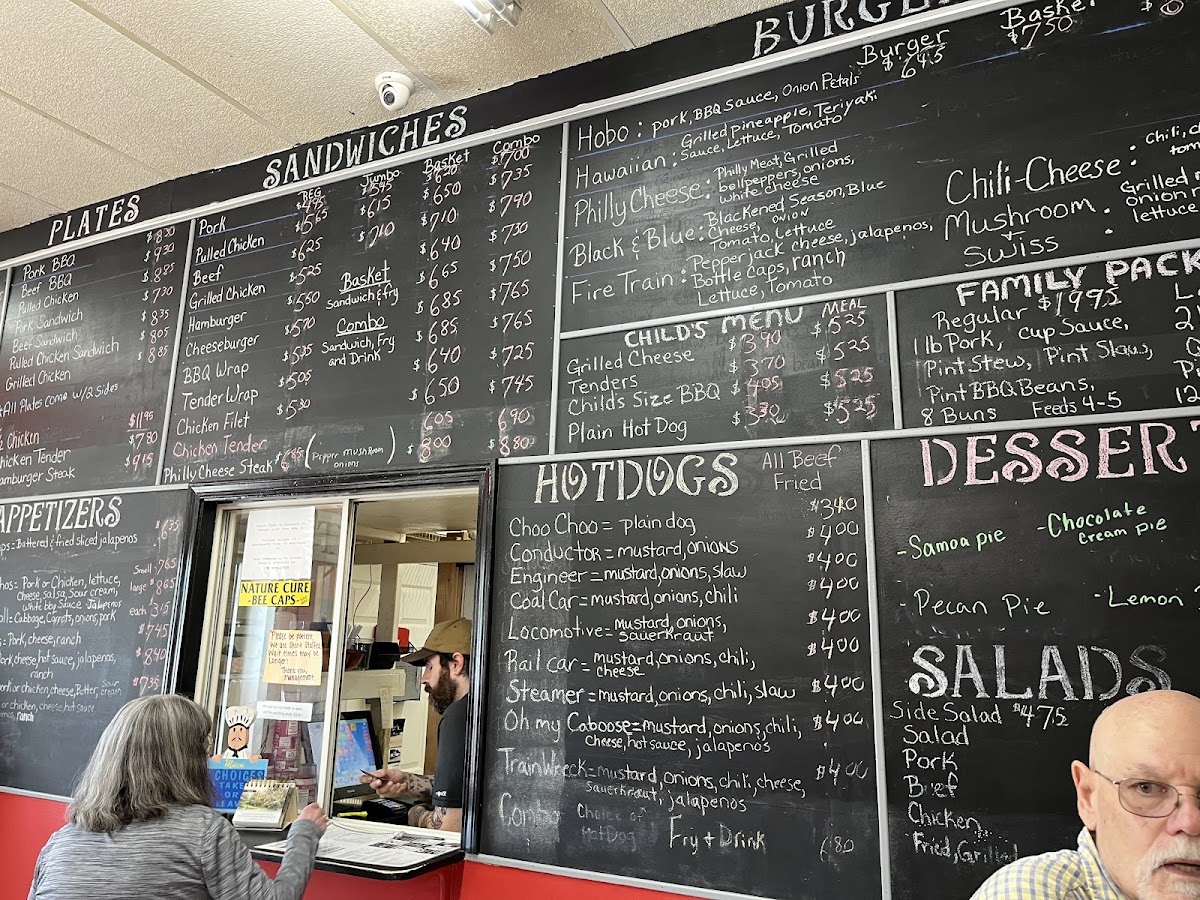 PLATES
Pork BBQ $8.30
Beef BBQ $9.30
Pulled Chicken $8.85
Pork Sandwich $7.30
Beef Sandwich $8.35
Pulled Chicken Sandwich $8.05
Grilled Chicken $8.85
All Plates come w/2 Sides
½ Chicken $11.95
Chicken Tender $7.80
Hamburger Steak $9.15
APPETIZERS
Battered & fried sliced jalapenos $6.35
Pork or Chicken, lettuce, Small 7.65
Cheese, salsa, Sour cream, large $8.65
white bbq Sauce Jalapenos
Cabbage, Carrots, onions, pork each 3.15
Pork, cheese, ranch $7.45
pork, cheese, hot sauce, jalapenos, $8.40
ranch
pork or chicken, cheese, Butter, Sour cream $7.35
or chicken, cheese, hot sauce
ranch
SANDWICHES
REG Jumbo Basket Combo
Pork $4.95 $5.95 $6.20 $7.00
Pulled Chicken $5.65 $6.15 $6.50 $7.35
Beef $6.25 $7.10 $7.10 $7.90
Grilled Chicken $5.25 $6.40 $7.30
Hamburger $5.50 $6.65 $7.50
Cheeseburger $5.70 $6.85 $7.65
BBQ Wrap $5.95 $6.85 $7.65
Tender Wrap $5.05 $6.40 $7.25
Chicken Filet $5.30 $6.50 $7.45
Chicken Tender 6.05 6.90
Philly Cheese Steak $6.85 (Pepper mushroom onions) $8.00 $8.80
Basket
Sandwich & fry
Combo
Sandwich, Fry
and Drink
BURGE
Burger $6.45
Basket $7.50
Hobo: pork, BBQ sauce, Onion Petals
Hawaiian: Grilled pineapple, Teriyaki
Sauce, Lettuce, Tomato
Philly Cheese: Philly Meat, Grilled
bellpeppers, onions,
white cheese
Black & Blue: Blackened Season, Blue
Cheese, onion
Tomato, Lettuce
Fire Train: Pepper jack cheese, jalapenos,
Bottle Caps, ranch
Lettuce, Tomato
Chili-Cheese: Chili,
Mushroom + Swiss: Grilled
onion
lettuce
CHILD'S MENU MEAL
Grilled Cheese $3.90 $5.25
Tenders $3.70 $5.25
Child's Size BBQ $4.05 $5.25
Plain Hot Dog $3.30 $5.25
FAMILY PACK
Regular $19.95
1 lb Pork, cup Sauce,
Pint Stew, Pint Slaw,
Pint BBQ Beans,
8 Buns Feeds 4-5
12
HOTDOGS All Beef
Fried
Choo Choo = plain dog $3.40
Conductor = mustard, onions $4.00
Engineer = mustard, onions, slaw $4.00
Coal Car = mustard, onions, chili $4.00
Locomotive = mustard, onions, $4.00
sauerkraut
Rail car = mustard, onions, chili, $4.00
cheese
Steamer = mustard, onions, chili, slaw $4.00
Oh my Caboose = mustard, onions, chili, $4.00
Cheese, hot sauce, jalapenos
TrainWreck = mustard, onions, chili, cheese, $4.00
Sauerkraut, jalapenos
Combo Choice of
HotDog Fry + Drink 6.80
DESSERT
-Samoa pie
-Chocolate
cream pie
-Pecan Pie
-Lemon
SALADS
Side Salad $4.75
Salad
Pork
Beef
Chicken
Fried, Grilled
NATURE CURE
-BEE CAPS-
Please be patient,
We are Short Staffed
Wait times may be
Longer!
Thank you,
management
Menu
CHOICES
TAKE
OR
LEAVE